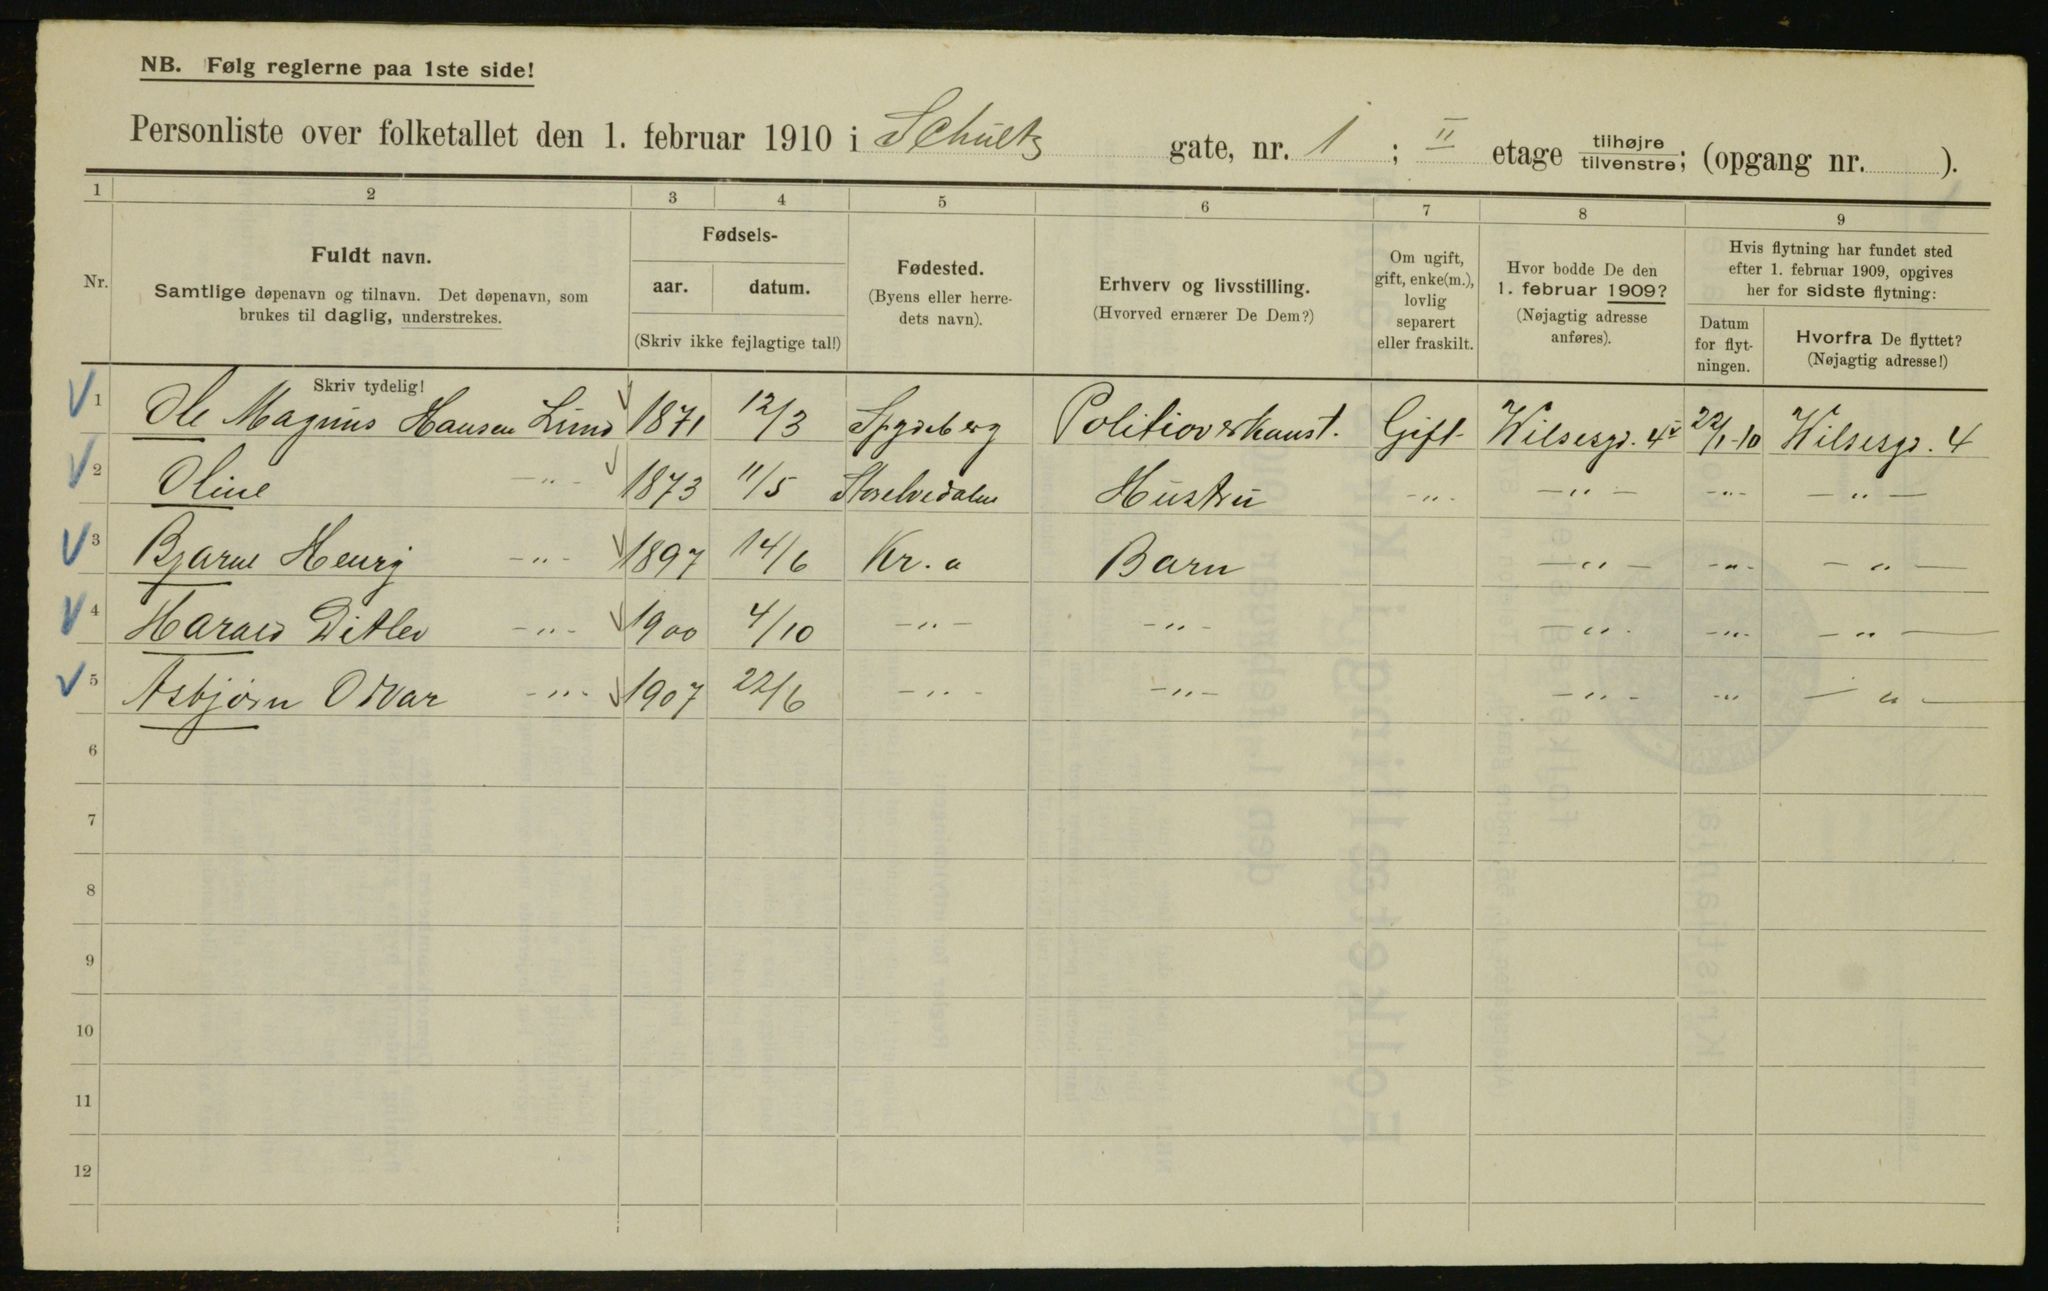 NB. Følg reglerne paa 1ste side!
Personliste over folketallet den 1. februar 1910 i Schultz gate, nr. 1 ; II etage tilhøjre tilvenstre; (opgang nr. ).
1 2 3 4 5 6 7 8 9
Nr.
Fuldt navn.
Samtlige døpenavn og tilnavn. Det døpenavn, som
brukes til daglig, understrekes.
Skriv tydelig!
Fødsels-
aar. datum.
(Skriv ikke fejlagtige tal!)
Fødested.
(Byens eller herre-
dets navn).
Erhverv og livsstilling.
(Hvorved ernærer De Dem?)
Om ugift,
gift, enke(m.),
lovlig
separert
eller fraskilt.
Hvor bodde De den
1. februar 1909?
(Nøjagtig adresse
anføres).
Hvis flytning har fundet sted
efter 1. februar 1909, opgives
her for sidste flytning:
Datum
for flyt-
ningen.
Hvorfra De flyttet?
(Nøjagtig adresse!)
1 Ole Magnus Hansen Lund 1871 12/3 Spydeberg Politioverkonst. Gift Wilsesgd. 4 22/1-10 Wilsesgd. 4
2 Oline -"- 1873 11/5 Storelvedalen Hustru -"- -"- -"- -"-
3 Bjarne Henry -"- 1897 14/6 Kr.a Barn -"- -"- -"-
4 Harald Ditlev -"- 1900 4/10 -"- -"- -"- -"- -"-
5 Asbjørn Odvar -"- 1907 22/6 -"- -"- -"- -"- -"-
6
7
8
9
10
11
12